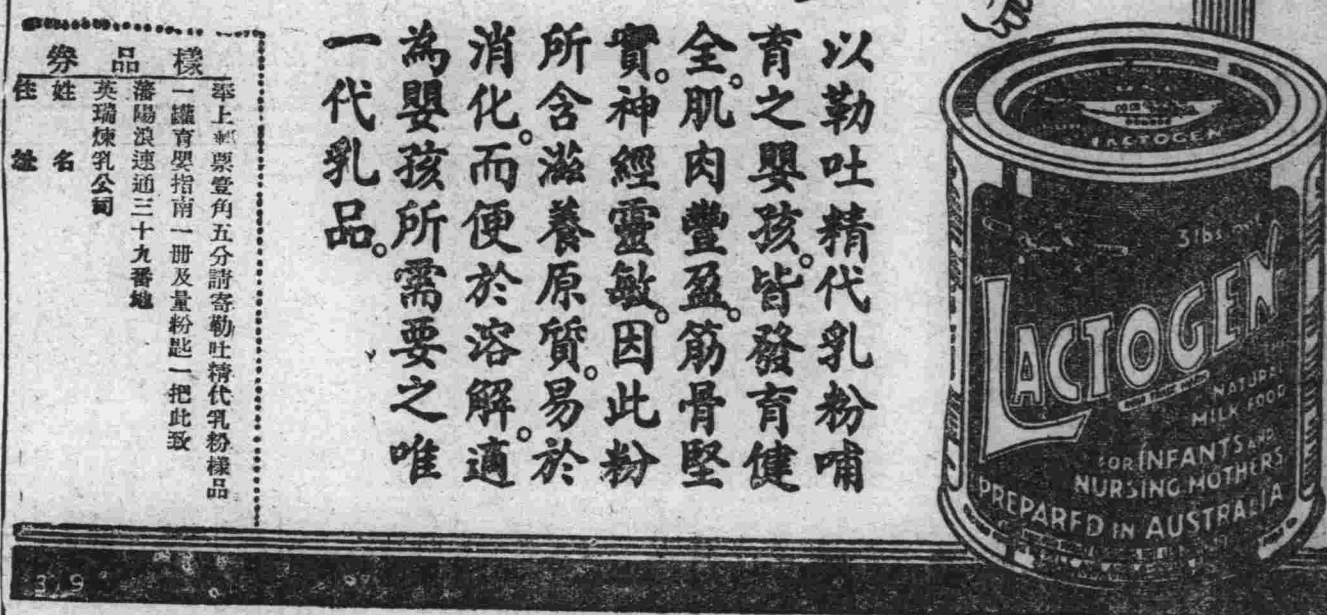 以勒吐精代乳粉哺
育之嬰孩。皆發育健
全。肌肉豐盈。筋骨堅
實。神經靈敏。因此粉
所含滋養原質。易於
消化。而便於溶解。適
為嬰孩所需要之唯
一代乳品。
樣品券
奉上郵票壹角五分請寄勒吐精代乳粉樣品
一罐育嬰指南一冊及量粉匙一把此致
瀋陽浪速通三十九番地
英瑞煉乳公司
姓名
住址
LACTOGEN
3 lbs net
LACTOGEN
NATURAL
MILK FOOD
FOR INFANTS AND
NURSING MOTHERS
PREPARED IN AUSTRALIA